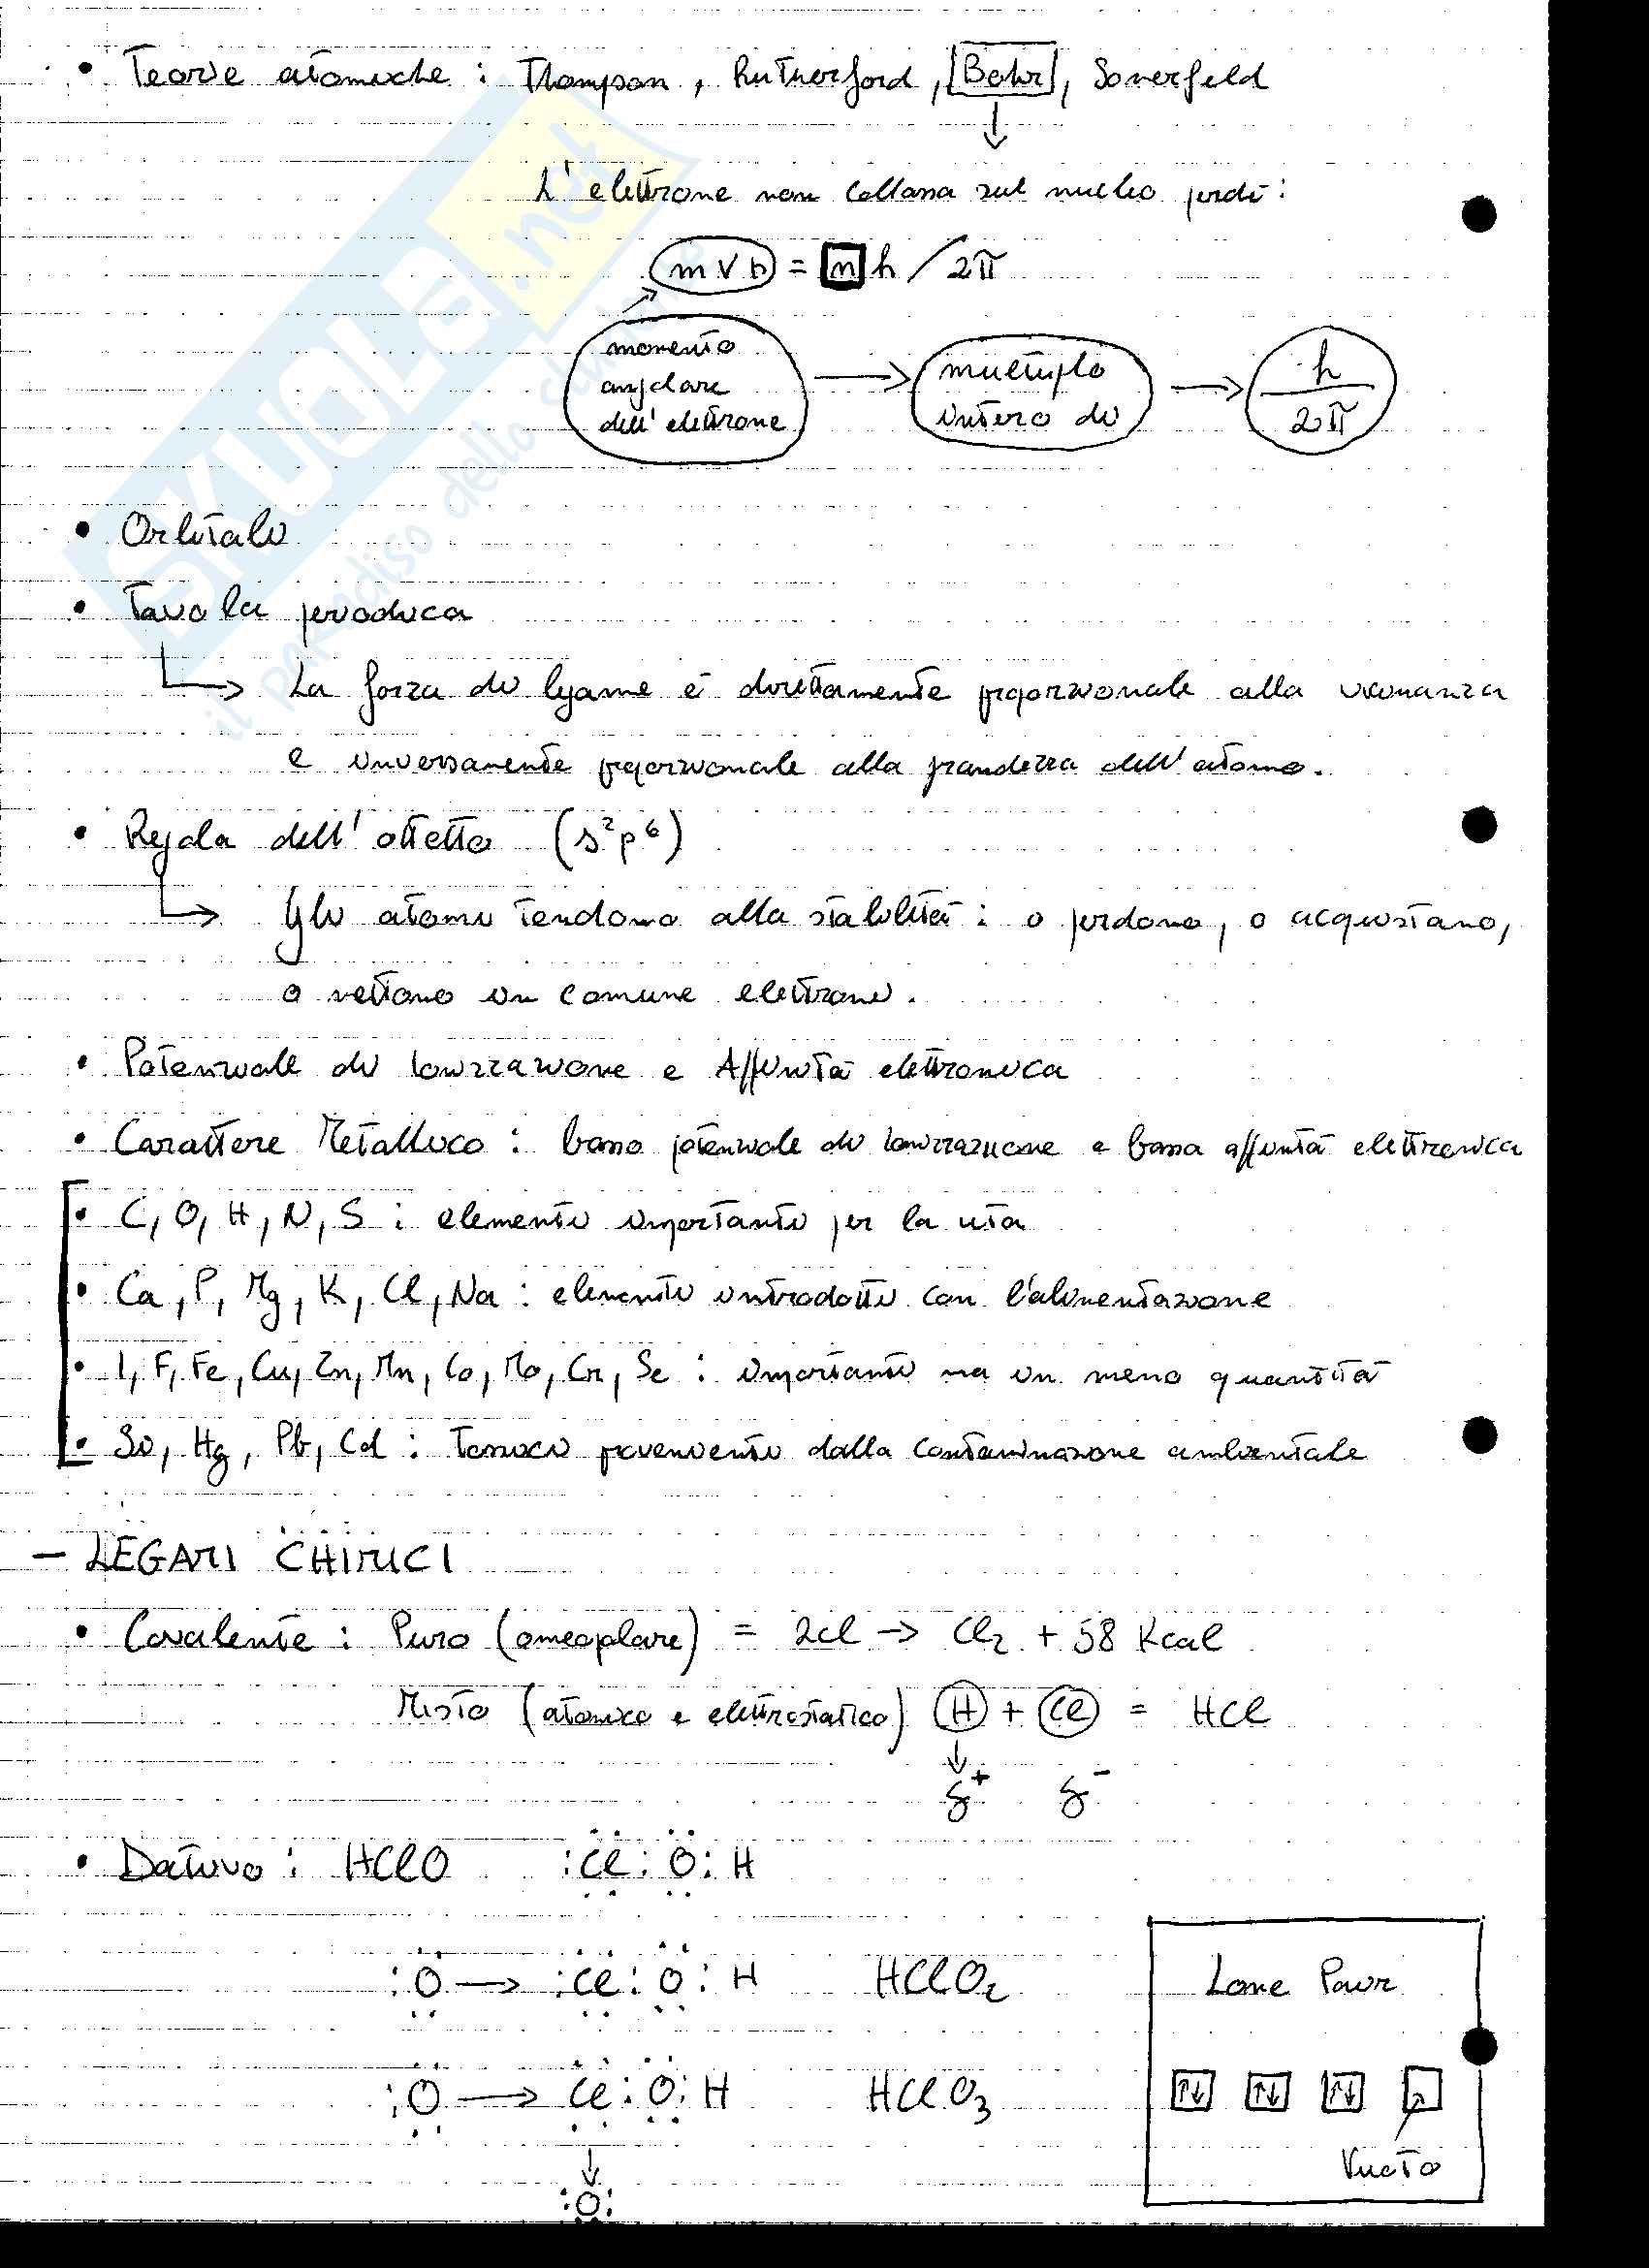 • Teorie atomiche : Thompson, Rutherford, Bohr, Somerfeld
L'elettrone non collassa sul nucleo perchè :
m v r = n h / 2π
momento angolare dell' elettrone → multiplo intero di → h / 2π
• Orbitali
• Tavola periodica
→ La forza di legame è direttamente proporzionale alla vicinanza
e inversamente proporzionale alla grandezza dell' atomo.
• Regola dell' ottetto (s²p⁶)
→ Gli atomi tendono alla stabilità : o perdono, o acquistano,
o mettono in comune elettroni.
• Potenziale di ionizzazione e Affinità elettronica
• Carattere Metallico : basso potenziale di ionizzazione e bassa affinità elettronica
• C, O, H, N, S : elementi importanti per la vita
• Ca, P, Mg, K, Cl, Na : elementi introdotti con l'alimentazione
• I, F, Fe, Cu, Zn, Mn, Co, Mo, Cr, Se : importanti ma in meno quantità
• Si, Hg, Pb, Cd : Tossici provenienti dalla contaminazione ambientale
– LEGAMI CHIMICI
• Covalente : Puro (omeopolare) = 2Cl → Cl₂ + 58 Kcal
Misto (atomico e elettrostatico) H + Cl = HCl
↓
δ⁺ δ⁻
• Dativo : HClO :Cl : O : H
:O → :Cl : O : H HClO₂
:O → Cl : O : H HClO₃
↓
:O:
Lone Pair
↑↓ ↑↓ ↑↓
Vuoto
SKUOLA.net
il paradiso dello